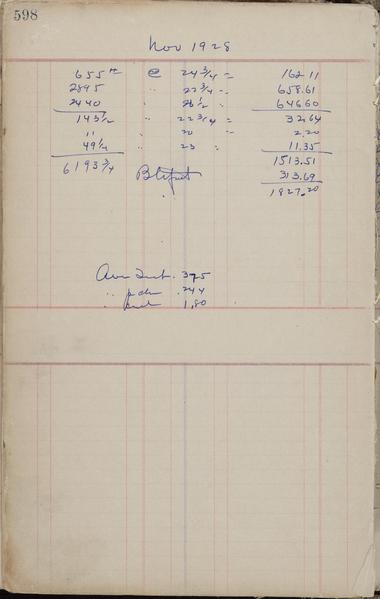 598
Nov 1928
655 @ 24 3/4 = 162 11
2895 " 22 3/4 " 658.61
2440 " 26 1/2 " 646.60
143 1/2 " 22 3/4 = 32.64
11 " 20 " 2.20
49 1/4 " 23 " 11.35
6193 3/4 1513.51
313.69
1827.20
.375
" .244
" 1.80